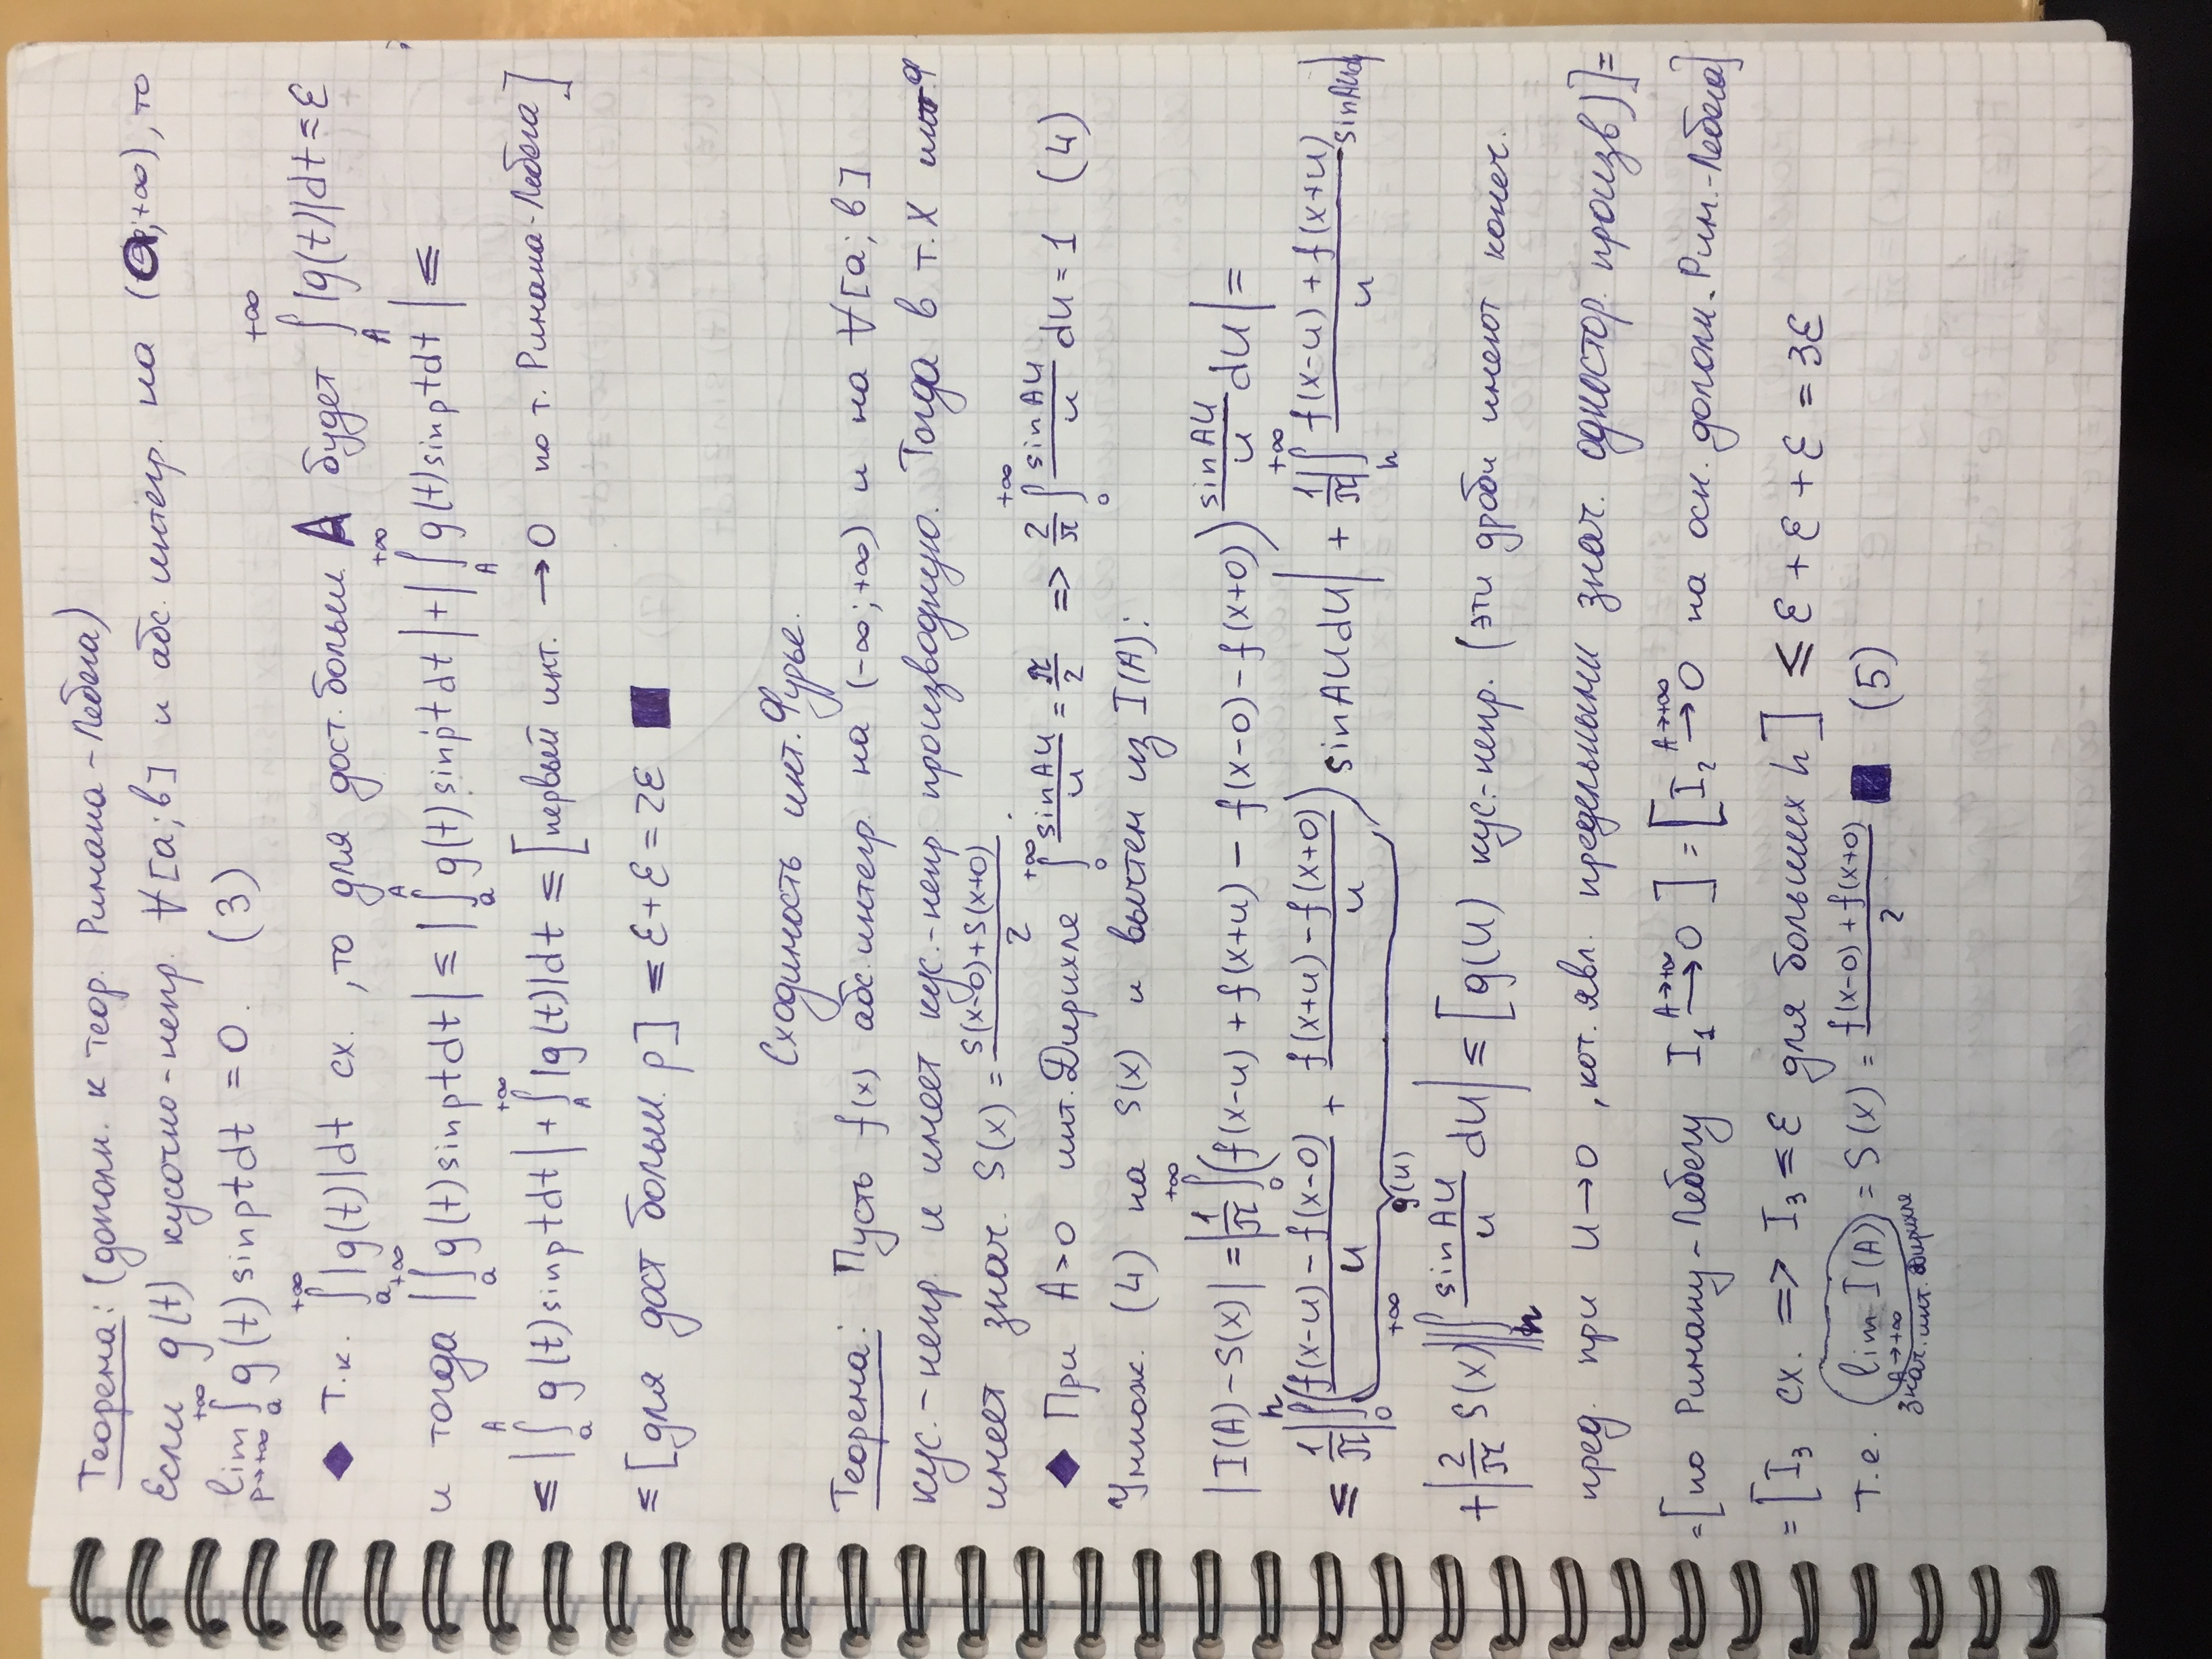 Теорема: (дополн. к теор. Римана-Лебега)
Если g(t) кусочно-непр. ∀[a;b] и абс. интегр. на (a;+∞), то
lim_{p→+∞} ∫_a^{+∞} g(t) sinpt dt = 0. (3)
◆ Т.к. ∫_a^{+∞} |g(t)|dt сх., то для дост. больш. A будет ∫_A^{+∞} |g(t)|dt ≤ ε
и тогда |∫_a^{+∞} g(t) sinpt dt| ≤ |∫_a^A g(t) sinpt dt| + |∫_A^{+∞} g(t) sinpt dt| ≤
≤ |∫_a^A g(t) sinpt dt| + ∫_A^{+∞} |g(t)|dt ≤ [первый инт. → 0 по т. Римана-Лебега]
≤ [для дост больш. p] ≤ ε + ε = 2ε ■
Сходимость инт. Фурье.
Теорема: Пусть f(x) абс. интегр. на (-∞;+∞) и на ∀[a;b]
кус.-непр. и имеет кус.-непр. производную. Тогда в т. X инт.Ф
имеет знач. S(x) = (S(x-0)+S(x+0))/2.
◆ При A>0 инт. Дирихле ∫_0^{+∞} sinAu/u = π/2 => 2/π ∫_0^{+∞} sinAu/u du = 1 (4)
Умнож. (4) на S(x) и вычтем из I(A):
|I(A) - S(x)| = |1/π ∫_0^{+∞} (f(x-u) + f(x+u) - f(x-0) - f(x+0)) sinAu/u du| =
≤ 1/π |∫_0^h ((f(x-u) - f(x-0))/u + (f(x+u) - f(x+0))/u) sinAu du| + 1/π |∫_h^{+∞} (f(x-u) + f(x+u))/u sinAu du|
g(u)
+ |2/π S(x)| |∫_h^{+∞} sinAu/u du| ≤ [g(u) кус.-непр. (эти дроби имеют конеч.
пред. при u→0, кот. явл. предельными знач. одностор. произв)] =
= [по Риману-Лебегу I₁ →^{A→+∞} 0] = [I₂ →^{A→+∞} 0 на осн. дополн. Рим.-Лебега]
= [I₃ сх. => I₃ ≤ ε для больших h] ≤ ε + ε + ε = 3ε
т.е. lim_{A→+∞} I(A) = S(x) = (f(x-0) + f(x+0))/2 ■ (5)
знач. инт. Дирихле